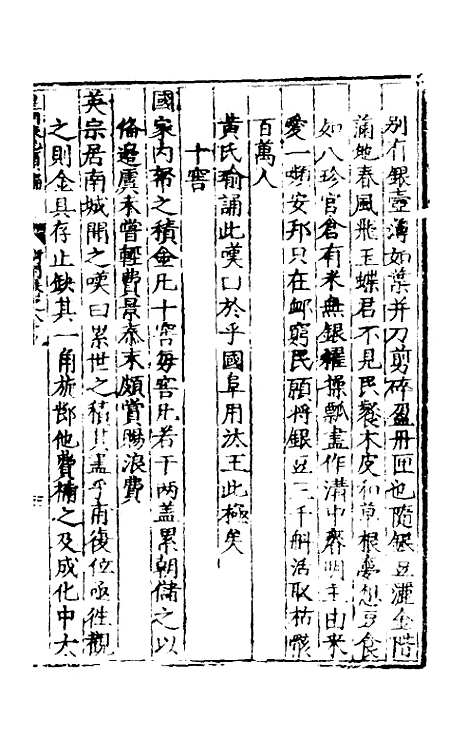 別有銀壺薄如葉并刀剪碎盈冊匣也隨銀豆灑金階
滿地春風飛玉蝶君不見民餐木皮和草根夢想豆食
如八珍官倉有米無銀糴操瓢盡作溝中瘠明主由來
愛一嚬安邦只在邺窮民願將銀豆三千斛活取枯骸
百萬人
黃氏瑜誦此嘆曰於乎國阜用汰王此極矣
十窖
國家內帑之積金凡十窖每窖凡若干兩盖累朝儲之以
備邊虞未嘗輕費景泰末頗賞賜浪費
英宗居南城聞之嘆曰累世之積其盡乎南復位亟徃觀
之則金具存止缺其一角旅鄧他費補之及成化中太